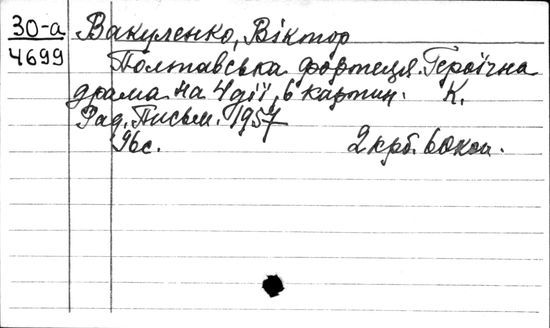 30-а
4699
Вакуленко, Віктор
Полтавська фортеця. Героїчна
драма на 4 дії, 6 картин. К.
Рад. Письм. 1957
96с. 2 крб. 60 коп.